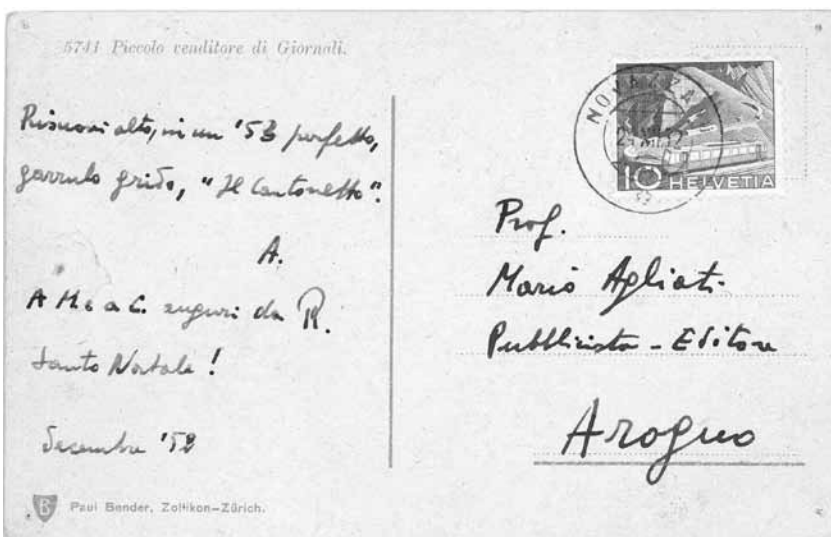 5741 Piccolo venditore di Giornali.
Risuoni alto, in un '53 perfetto,
garrulo grido, "Il Cantonetto".
A.
A M. e a C. auguri da R.
Santo Natale!
Dicembre '52
Paul Bender, Zollikon-Zürich.
NOVAZZANO
XII.52
10 HELVETIA
Prof.
Mario Agliati
Pubblicista - Editore
Arogno